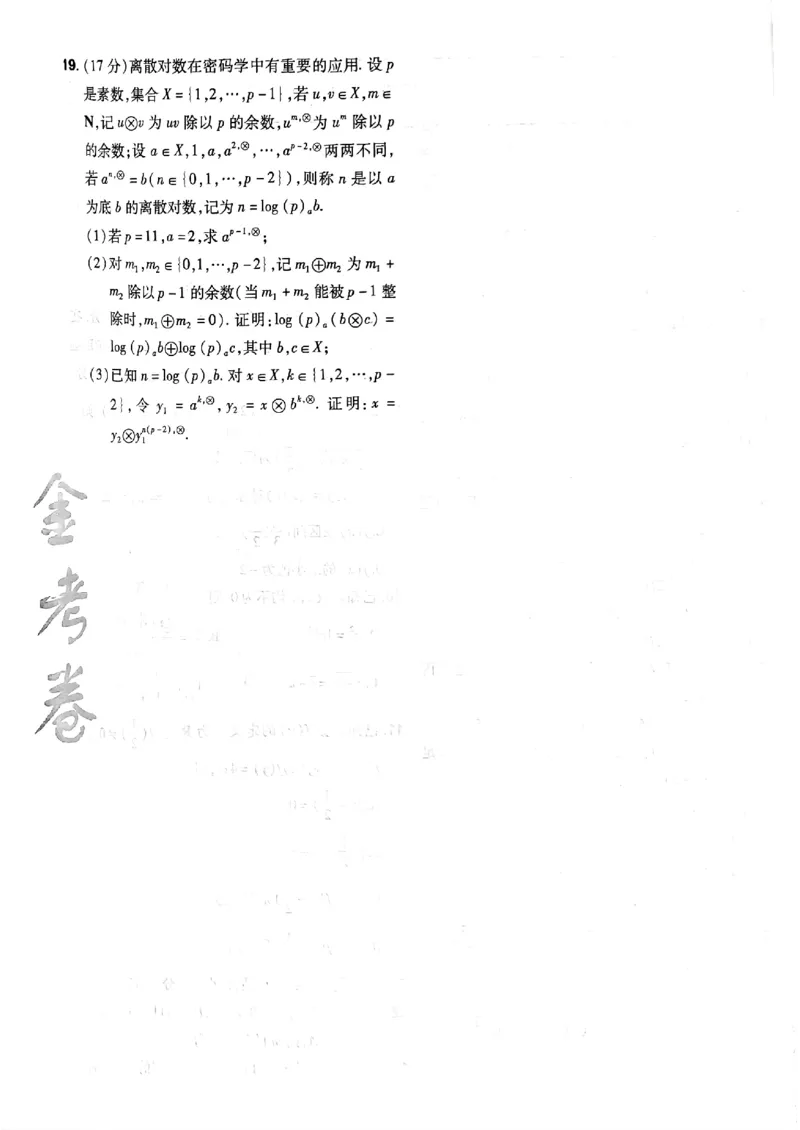 19. (17分)离散对数在密码学中有重要的应用. 设 p
是素数,集合 X = {1,2,…,p-1},若 u,v∈X,m∈
N,记 u⊗v 为 uv 除以 p 的余数,u^{m,⊗}为 u^m 除以 p
的余数;设 a∈X,1,a,a^{2,⊗},…,a^{p-2,⊗}两两不同,
若 a^{n,⊗} = b(n∈{0,1,…,p-2}),则称 n 是以 a
为底 b 的离散对数,记为 n = log (p)_a b.
(1)若 p=11,a=2,求 a^{p-1,⊗};
(2)对 m₁,m₂∈{0,1,…,p-2},记 m₁⊕m₂ 为 m₁ +
m₂ 除以 p-1 的余数(当 m₁ + m₂ 能被 p-1 整
除时,m₁⊕m₂ = 0). 证明:log (p)_a (b⊗c) =
log (p)_a b⊕log (p)_a c,其中 b,c∈X;
(3)已知 n = log (p)_a b. 对 x∈X,k∈{1,2,…,p-
2},令 y₁ = a^{k,⊗},y₂ = x⊗b^{k,⊗}. 证明:x =
y₂⊗y₁^{n(p-2),⊗}.
金
考
卷